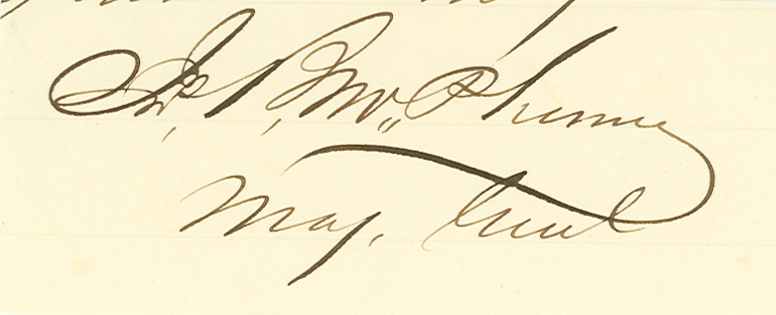 Jas. B. McPherson
Maj. Genl